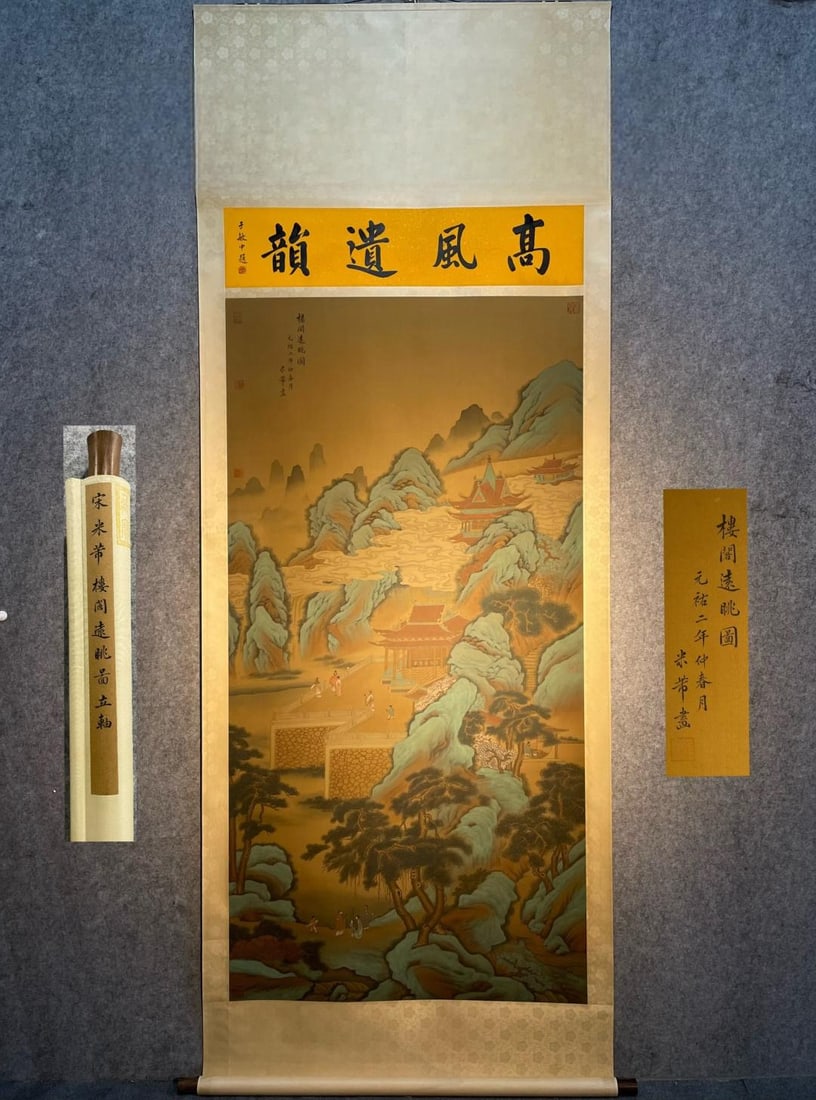 高風遺韻
于敏中題
樓閣遠眺圖
元祐二年仲春月
米芾畫
宋米芾樓閣遠眺圖立軸
樓閣遠眺圖
元祐二年仲春月
米芾畫